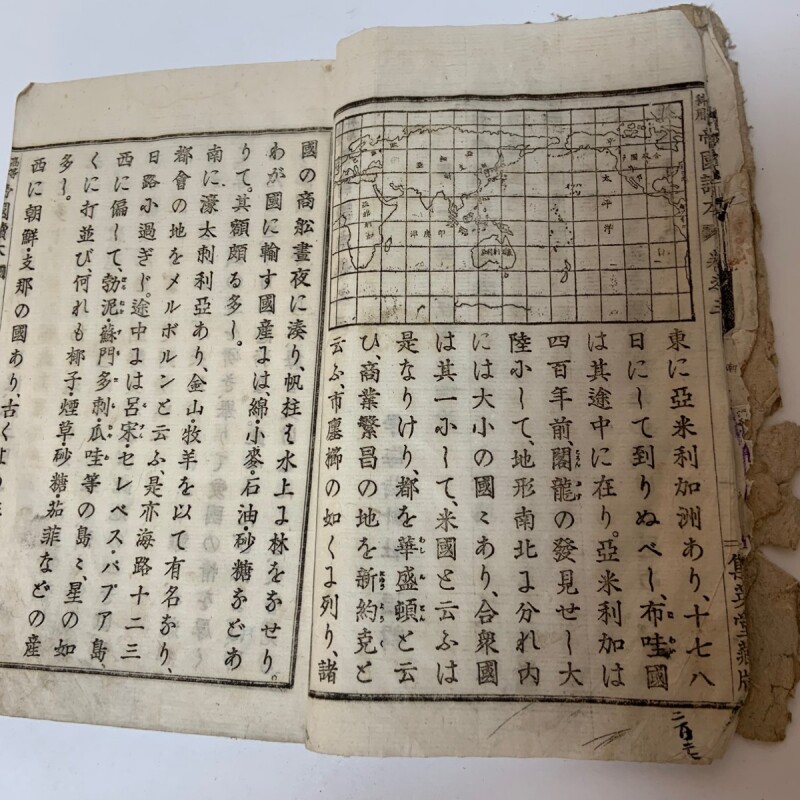 帝國讀本 卷之三
太平洋
印度洋
東に亞米利加洲あり、十七八
日にして到りぬべし、布哇國
は其途中に在り。亞米利加は
四百年前、閣龍の發見せし大
陸にして、地形南北に分れ、内
には大小の國々あり、合衆國
は其一にして、米國と云ふは
是なりけり、都を華盛頓と云
ひ、商業繁昌の地を新約克と
云ふ、市廛櫛の如くに列り、諸
集英堂藏版
國の商舩晝夜に湊り、帆柱は水上に林をなせり。
わが國に輸す國産には、綿・小麥・石油・砂糖などあ
りて。其額頗る多し。
南に、濠太刺利亞あり、金山・牧羊を以て有名なり、
都會の地をメルボルンと云ふ、是亦海路十二三
日路に過ぎじ。途中には呂宋・セレベス・パプア島、
西に偏して、勃泥・蘇門多刺・瓜哇等の島々、星の如
くに打並び、何れも椰子・煙草・砂糖・茄菲などの産
多し。
西に朝鮮・支那の國あり、古くは